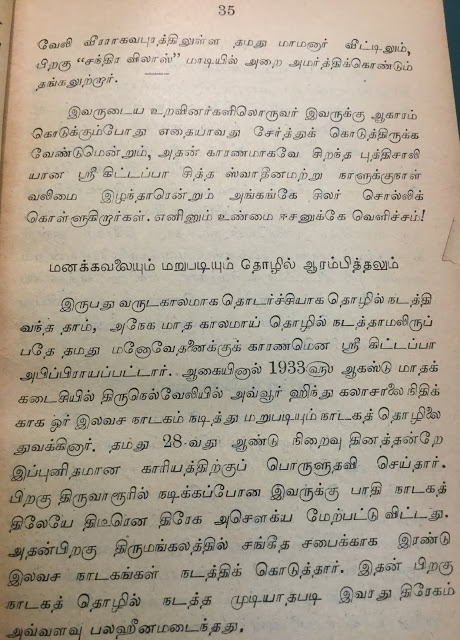 35
வேலி வீரராகவபுரத்திலுள்ள தமது மாமனார் வீட்டிலும்,
பிறகு “சந்திர விலாஸ்” மாடியில் அறை அமர்த்திக்கொண்டும்
தங்கலுற்றார்.
இவருடைய உறவினர்களிலொருவர் இவருக்கு ஆகாரம்
கொடுக்கும்போது எதையாவது சேர்த்துக் கொடுத்திருக்க
வேண்டுமென்றும், அதன் காரணமாகவே சிறந்த புத்திசாலி
யான ஸ்ரீ கிட்டப்பா சித்த ஸ்வாதீனமற்று நாளுக்குநாள்
வலிமை இழந்தாரென்றும் அங்கங்கே சிலர் சொல்லிக்
கொள்ளுகிறார்கள். எனினும் உண்மை ஈசனுக்கே வெளிச்சம்!
மனக்கவலையும் மறுபடியும் தொழில் ஆரம்பித்தலும்
இருபது வருடகாலமாக தொடர்ச்சியாக தொழில் நடத்தி
வந்த தாம், அநேக மாத காலமாய் தொழில் நடத்தாமலிருப்
பதே தமது மனோவேதனைக்குக் காரணமென ஸ்ரீ கிட்டப்பா
அபிப்பிராயப்பட்டார். ஆகையினால் 1933௵ ஆகஸ்டு மாதக்
கடைசியில் திருநெல்வேலியில் அவ்வூர் ஹிந்து கலாசாலை நிதிக்
காக ஓர் இலவச நாடகம் நடித்து மறுபடியும் நாடகத் தொழிலை
துவக்கினார். தமது 28-வது ஆண்டு நிறைவு தினத்தன்றே
இப்புனிதமான காரியத்திற்குப் பொருளுதவி செய்தார்.
பிறகு திருவாரூரில் நடிக்கப்போன இவருக்கு பாதி நாடகத்
திலேயே திடீரென திரேக அசௌக்ய மேற்பட்டு விட்டது.
அதன்பிறகு திருமங்கலத்தில் சங்கீத சபைக்காக இரண்டு
இலவச நாடகங்கள் நடத்திக் கொடுத்தார். இதன் பிறகு
நாடகத் தொழில் நடத்த முடியாதபடி இவரது திரேகம்
அவ்வளவு பலஹீனமடைந்தது.